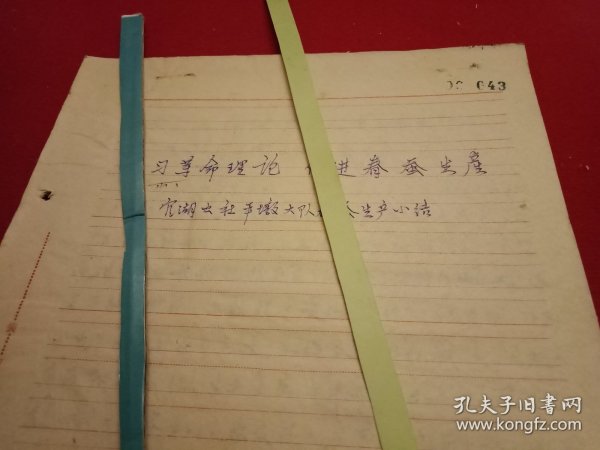 043
习革命理论 进春蚕生產
官湖公社平墩大队 生产小结
孔夫子旧书网
www.kongfz.com